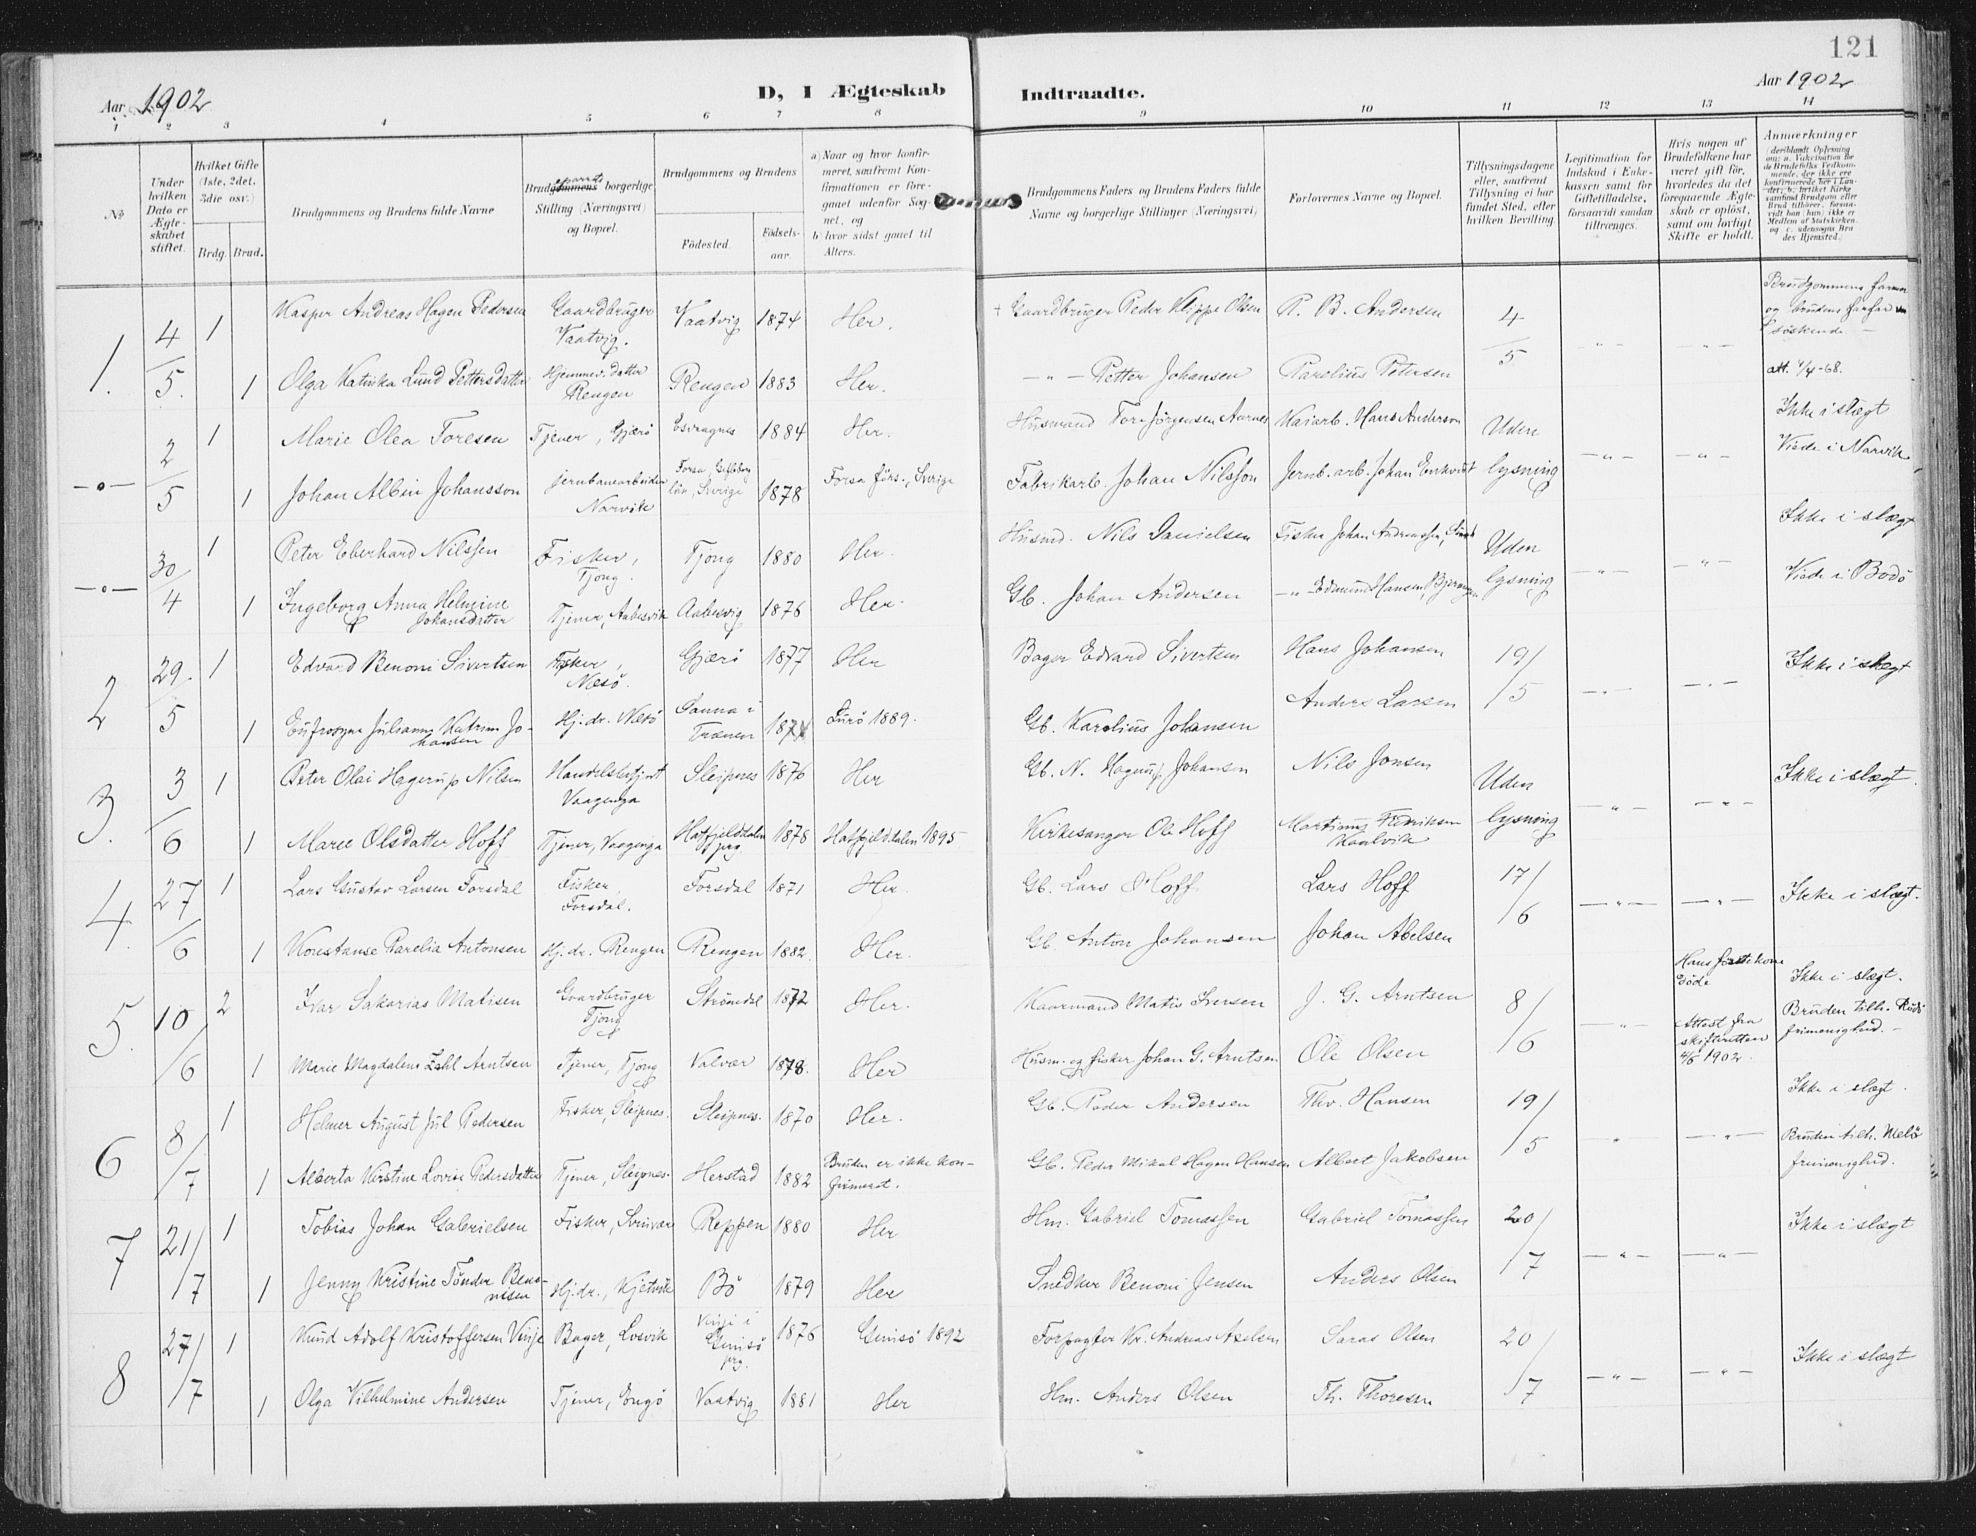 121
Aar 1902
D, I Ægteskab
Indtraadte.
Aar 1902
1 2 3 4 5 6 7 8 9 10 11 12 13 14
No
Under hvilken Dato er Ægteskabet stiftet.
Hvilket Gifte (1ste, 2det, 3die osv.)
Brdg. Brud.
Brudgommens og Brudens fulde Navne
borgerlige Stilling (Næringsvei) og Bopæl.
Brudgommens og Brudens
Fødested.
Fødselsaar.
a) Naar og hvor konfirmeret, samt
b) hvor sidst gaaet til Alters.
Brudgommens Faders og Brudens Faders fulde Navne og borgerlige Stillinger (Næringsvei)
Forlovernes Navne og Bopæl.
Tillysningsdagene eller, saafremt Tillysning ei har fundet Sted, efter hvilken Bevilling.
Legitimation for Indskud i Enkekassen samt for Giftetilladelse, forsaavidt saadan tiltrænges.
Hvis nogen af Brudefolkene har været gift før, hvorledes da det foregaaende Ægteskab er opløst, samt om lovligt Skifte er holdt.
Anmærkninger
1. 4/5. 1 Kasper Andreas Hagen Pedersen Gaardbruger Vaatvig. Vaatvig 1874 Her. + Gaardbruger Peder Klippe Olsen P. B. Andersen 4/5 Brudgommens farmor og brudens farfar søskende.
1 Olga Katinka Lund Pettersdatter Hjemmev. datter Rengen Rengen 1883 Her. — " — Petter Johansen Parelius Petersen att. 4/4-68.
-o- 2/5 1 Marie Olea Toresen Tjener, Gjærø Esvragnes 1884 Her. Husmand Tore Jørgensen Aarnes Kaiarb. Hans Anderson Uden lysning Ikke i slægt
1 Johan Albin Johansson jernbanearbeider Narvik Forsa, Gefleborg län, Sverige 1878 Forsa förs., Sverige Fabrikarb. Johan Nilsson Jernb. arb. Johan Enkvist Viede i Narvik
-o- 30/4 1 Peter Eberhard Nilssen Fisker, Tjong. Tjong 1880 Her. Husmd. Nils Danielsen Fisker Johan Andreassen, Uden lysning Ikke i slægt
1 Ingeborg Anna Helmine Johansdatter Tjener, Aabesvik Aabesvig 1876 Her. Gb. Johan Andersen — " — Edmund Hansen, Viede i Bodø
2 29/5 1 Edvard Benoni Sivertsen Fisker, Næsø. Gjærø 1877 Her Bager Edvard Sivertsen Hans Johansen 19/5 Ikke i slægt
1 Eufrosyne Julianne Katrine Johansen Hj. dr. Næsø Sanna i Trænen 187 Lurø 1889. Gb. Karolius Johansen Anders Larsen
3. 3/6 1 Peter Olai Hagerup Nilsen Handelsbetjent Vaagenga Sleipnes 1876 Her Gb. N. Hagrup Johansen Nils Jonsen Uden lysning Ikke i slægt.
1 Marie Olsdatter Hoff Tjener, Vaagenga Hatfjelddalen prg 1878 Hatfjelddalen 1895 Kirkesanger Ole Hoff Martinus Fredriksen
4. 27/6 1 Lars Gustav Larsen Forsdal Fisker, Forsdal. Forsdal 1871 Her. Gb. Lars Hoff Lars Hoff 17/6 Ikke i slægt.
1 Konstanse Parelia Antonsen Hj. dr. Rengen Rengen 1882. Her. Gb. Anton Johansen Johan Abelsen
5. 10/6 2 Ivar Sakarias Matisen Gaardbruger Tjong Strømdal 1872 Her. Kaarmand Matis Iversen J. G. Arntsen 8/6 Hans første kone døde Ikke i slægt.
1 Marie Magdalene Zahl Arntsen Tjener, Tjong Valvær 1878. Her Husm. og fisker Johan G. Arntsen Ole Olsen Attest fra skifteretten 4/6 1902. Bruden tilh. Rødø frimenighed.
6 8/7 1 Helmer August Jul Pedersen Fisker, Sleipnes. Sleipnes. 1870 Her. Gb. Peder Andersen Thv. Hansen 19/5 Ikke i slægt.
1 Alberta Kirstine Lovise Pedersdatter Tjener, Sleipnes. Herstad 1882 Bruden er ikke konfirmeret. Gb. Peder Mikal Hagen Hansen Albert Jakobsen Bruden tilh. Melø frimenighed.
7 21/7 1 Tobias Johan Gabrielsen Fisker, Svinvær Reppen 1880 Her Hm. Gabriel Tomassen Gabriel Tomassen 20/7 Ikke i slægt
1 Jenny Kristine Tønder Benonisen Hj. dr., Kjelvik Bø 1879 Her Snedker Benoni Jensen Anders Olsen
8 27/7 1 Knud Adolf Kristoffersen Vinje Bager, Losvik Vinje i Gimsø prg. 1876 Gimsø 1892 Forpagter Kr. Andreas Axelsen Saras Olsen 20/7 Ikke i slægt
1 Olga Vilhelmine Andersen Tjener, Engø Vaatvig 1881 Her Hm. Anders Olsen Th. Thoresen